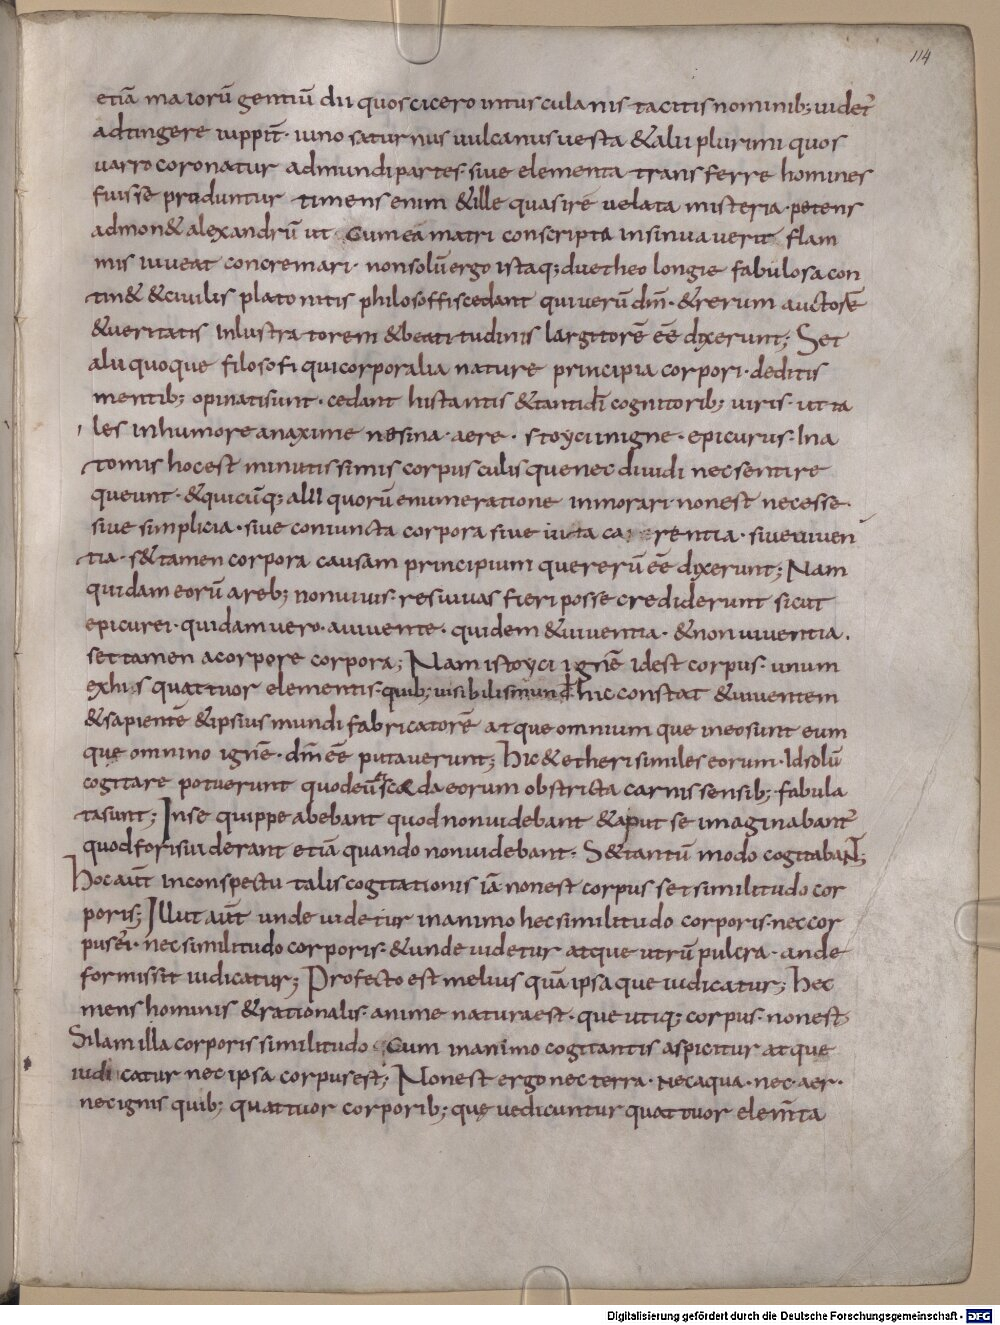 114
etiā maiorū gentiū dii quos cicero intusculanis tacitis nominib; uidet᷑
adtingere iuppit᷑· iuno saturnus uulcanus uesta &alii plurimi quos
uarro coronatur admundi partes· siue elementa transferre homines
fuisse produntur timens enim &ille quasi re uelata misteria· petens
admon& alexandrū ut Cum eā matri conscripta insinuauerit flam
mis iuueat concremari· nonsolū ergo istaq; due theologie fabulosa con
tin& &ciuilis platonitis philosoffis cedant qui uerū dm̄· &rerum auctorē
&ueritatis inlustratorem &beatitudinis largitorē eē dixerunt; Set
alii quoque filosofi qui corporalia nature principia corpori· deditis
mentib; opinati sunt· cedant his tantis &tanti di̅ cognitorib; uiris· ut ta
les inhumore anaxime nesina· aere· stoyci inigne· epicurus· Ina
tomis hoc est minutissimis corpusculis que nec diuidi nec sentire
queunt· &quicūq; alii quorū enumeratione inmorari non est necesse·
siue simplicia· siue coniuncta corpora siue iuita ca rentia· siue uiuen̄
tia· s& tamen corpora causam principium que rerū eē dixerunt; Nam
quidam eorū areb; nonuiuis· res uiuas fieri posse crediderunt sicut
epicurei· quidam uero· auiuente· quidem &uiuentia· &non uiuentia·
set tamen acorpore corpora; Nam istoyci ignē idest corpus· unum
exhis quattuor elementis· quib; uisibilis mund᷒ hic constat &uiuentem
&sapientē &ipsius mundi fabricatorē atque omnium que ineo sunt eum
que omnino ignē· dm̄ eē putauerunt; hic &etheri similes eorum· Id solū
cogitare potuerunt quod eū sc̄e da eorum obstricta carnis sensib; fabula
ta sunt; Inse quippe abebant quod non uidebant &aput se imaginabant᷑
quod foris uiderant etiā quando non uidebant· S& tantū modo cogitabaNt;
hoc aūt inconspectu talis cogitationis iā non est corpus set similitudo cor
poris; Illut aūt unde uidetur inanimo hec similitudo corporis· nec cor
pus ēt· nec similitudo corporis· &unde uidetur atque utrū pulcra· ande
formis sit iudicatur; Profecto est melius quā ipsa que iudicatur; hec
mens hominis &rationalis· anime natura est· que utiq; corpus· non est·
Si lam illa corporis similitudo Cum inanimo cogitantis aspicitur atque
iudicatur nec ipsa corpus est; Non est ergo nec terra· nec aqua· nec· aer·
nec ignis quib; quattuor corporib; que ue dicuntur quattuor elem̄ta
Digitalisierung gefördert durch die Deutsche Forschungsgemeinschaft - DFG